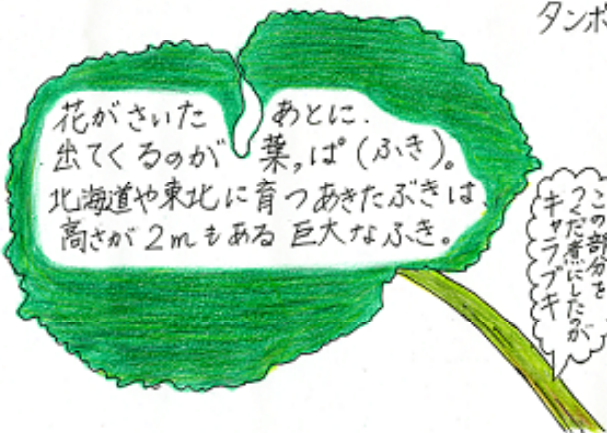 タンポ
花がさいた あとに、
出てくるのが 葉っぱ(ふき)。
北海道や東北に育つあきたぶきは、
高さが2mもある巨大なふき。
この部分を
つくだ煮にしたのが
キャラブキ